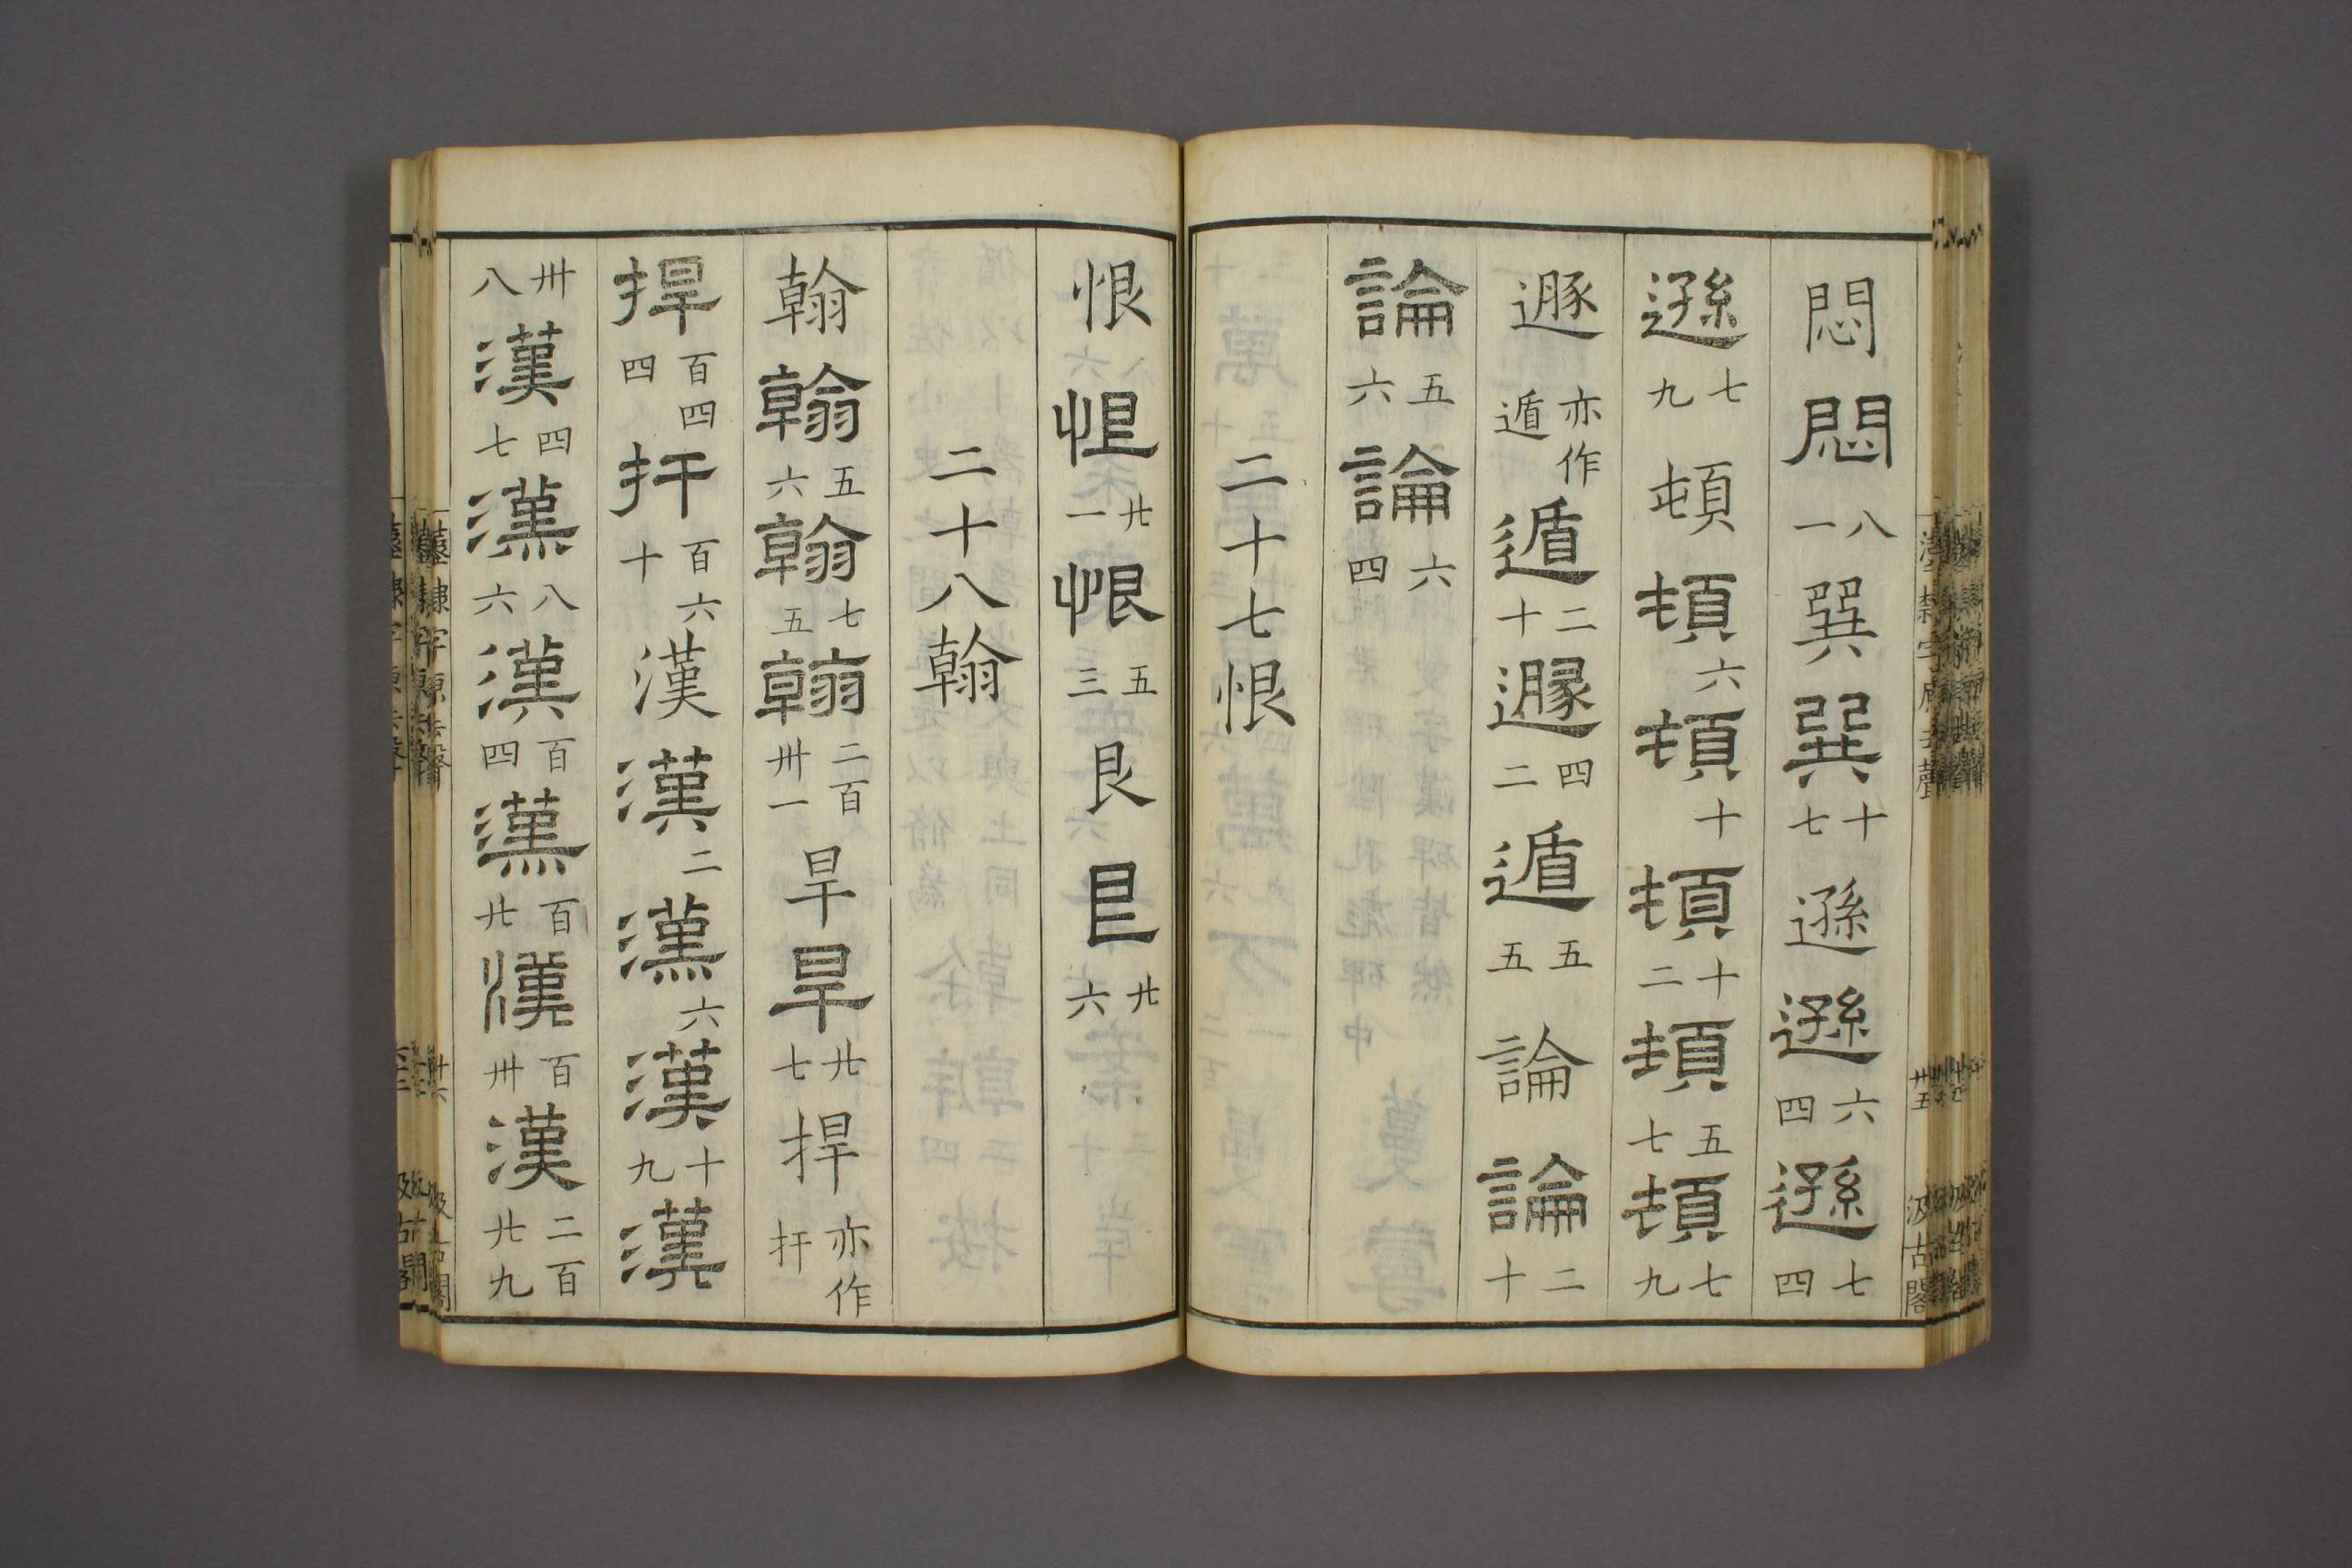 悶 悶 八一 巽 巽 十七 遜 遜 六四 遜 七四
遜 七九 頓 頓 六 頓 十 頓 十二 頓 五七 頓 七九
遯 亦作遁 遁 二十 遯 四二 遁 五五 論 論 二十
論 五六 論 六四
二十七恨
恨 恨 廿一 恨 五三 艮 艮 廿六
二十八翰
翰 翰 五六 翰 七五 翰 二百卅一 旱 旱 廿七 捍 亦作扞
捍 百四四 扞 百六十 漢 漢 二 漢 六 漢 十九 漢
卅八 漢 四七 漢 八六 漢 百四 漢 百廿 漢 百卅 漢 二百廿九
漢隸字原去聲 廿五 汲古閣
漢隸字原去聲 廿六 汲古閣